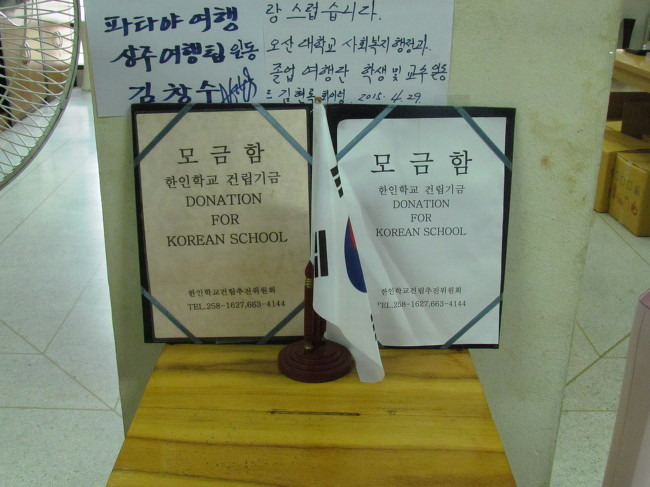 파타야 여행
상주여행팀 원동
김창수
랑 스럽습니다.
오산 대학교 사회복지행정과
졸업 여행단 학생 및 교수 원동
2015. 4. 29.
모 금 함
한인학교 건립기금
DONATION
FOR
KOREAN SCHOOL
한인학교건립추진위원회
TEL.258-1627,663-4144
모 금 함
한인학교 건립기금
DONATION
FOR
KOREAN SCHOOL
한인학교건립추진위원회
TEL.258-1627,663-4144